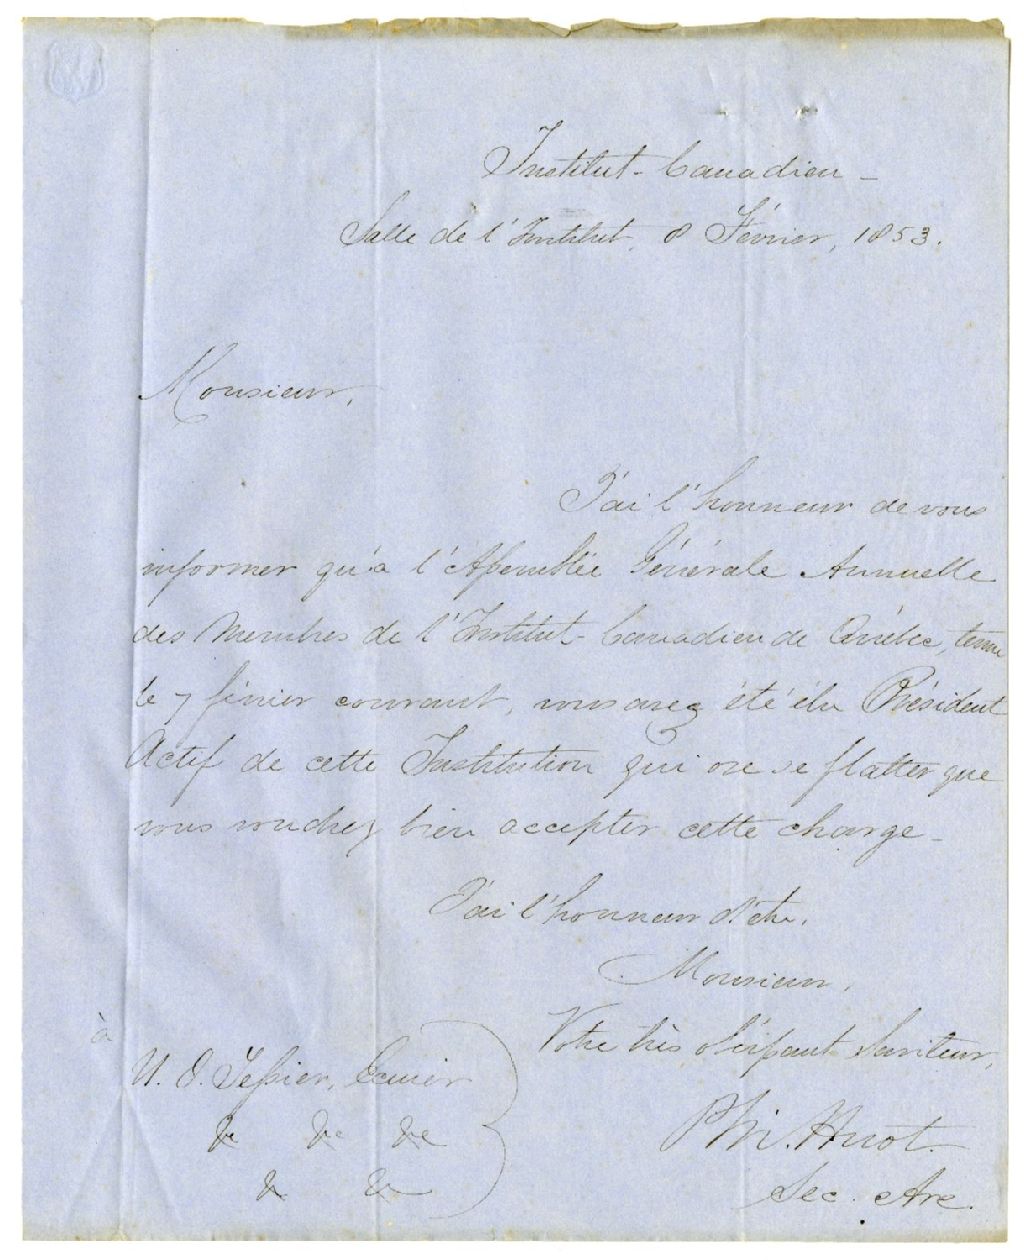 Institut-Canadien -
Salle de l'Institut, 8 Février, 1853.
Monsieur,
J'ai l'honneur de vous
informer qu'à l'Assemblée Générale Annuelle
des Membres de l'Institut-Canadien de Québec, tenue
le 7 février courant, vous avez été élu Président
Actif de cette Institution qui ose se flatter que
vous voudrez bien accepter cette charge -
J'ai l'honneur d'être,
Monsieur,
Votre très obéissant Serviteur,
à
U. J. Tessier, Ecuier
&c &c &c
& &c
Phi. Huot.
Sec. Arc.